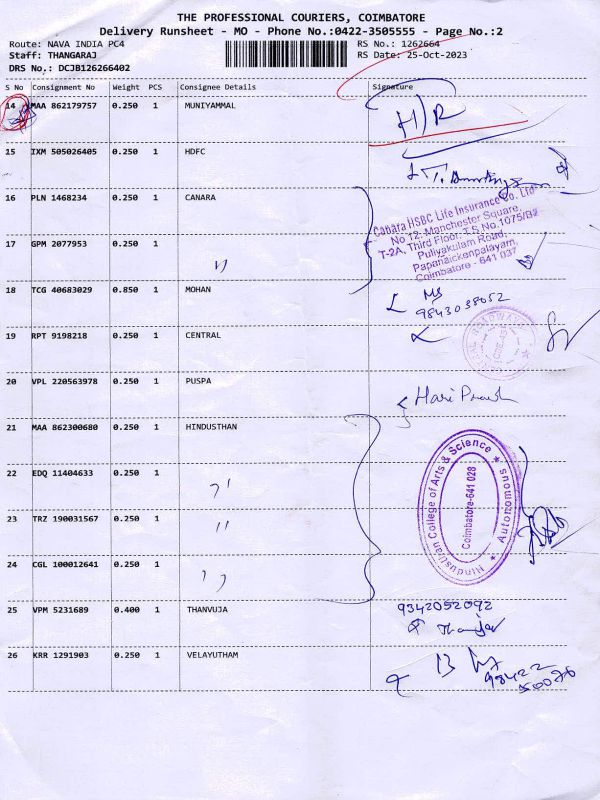 THE PROFESSIONAL COURIERS, COIMBATORE
Delivery Runsheet - MO - Phone No.:0422-3505555 - Page No.:2
Route: NAVA INDIA PC4
RS No.: 1262664
Staff: THANGARAJ
RS Date: 25-Oct-2023
DRS No.: DCJB126266402
S No Consignment No Weight PCS Consignee Details Signature
14 MAA 862179757 0.250 1 MUNIYAMMAL
15 IXM 505026405 0.250 1 HDFC
16 PLN 1468234 0.250 1 CANARA
Canara HSBC Life Insurance Co. Ltd
No 12, Manchester Square,
T-2A, Third Floor, T.S No.1075/B2
Puliyakulam Road,
Papanaickenpalayam,
Coimbatore - 641 037
17 GPM 2077953 0.250 1 "
18 TCG 40683029 0.850 1 MOHAN
9843038052
19 RPT 9198218 0.250 1 CENTRAL
20 VPL 220563978 0.250 1 PUSPA
Hari
21 MAA 862300680 0.250 1 HINDUSTHAN
Hindusthan College of Arts & Science ★ Autonomous ★
Coimbatore-641 028
22 EDQ 11404633 0.250 1 "
23 TRZ 190031567 0.250 1 "
24 CGL 100012641 0.250 1 "
25 VPM 5231689 0.400 1 THANVUJA
9342052092
26 KRR 1291903 0.250 1 VELAYUTHAM
98422
50076